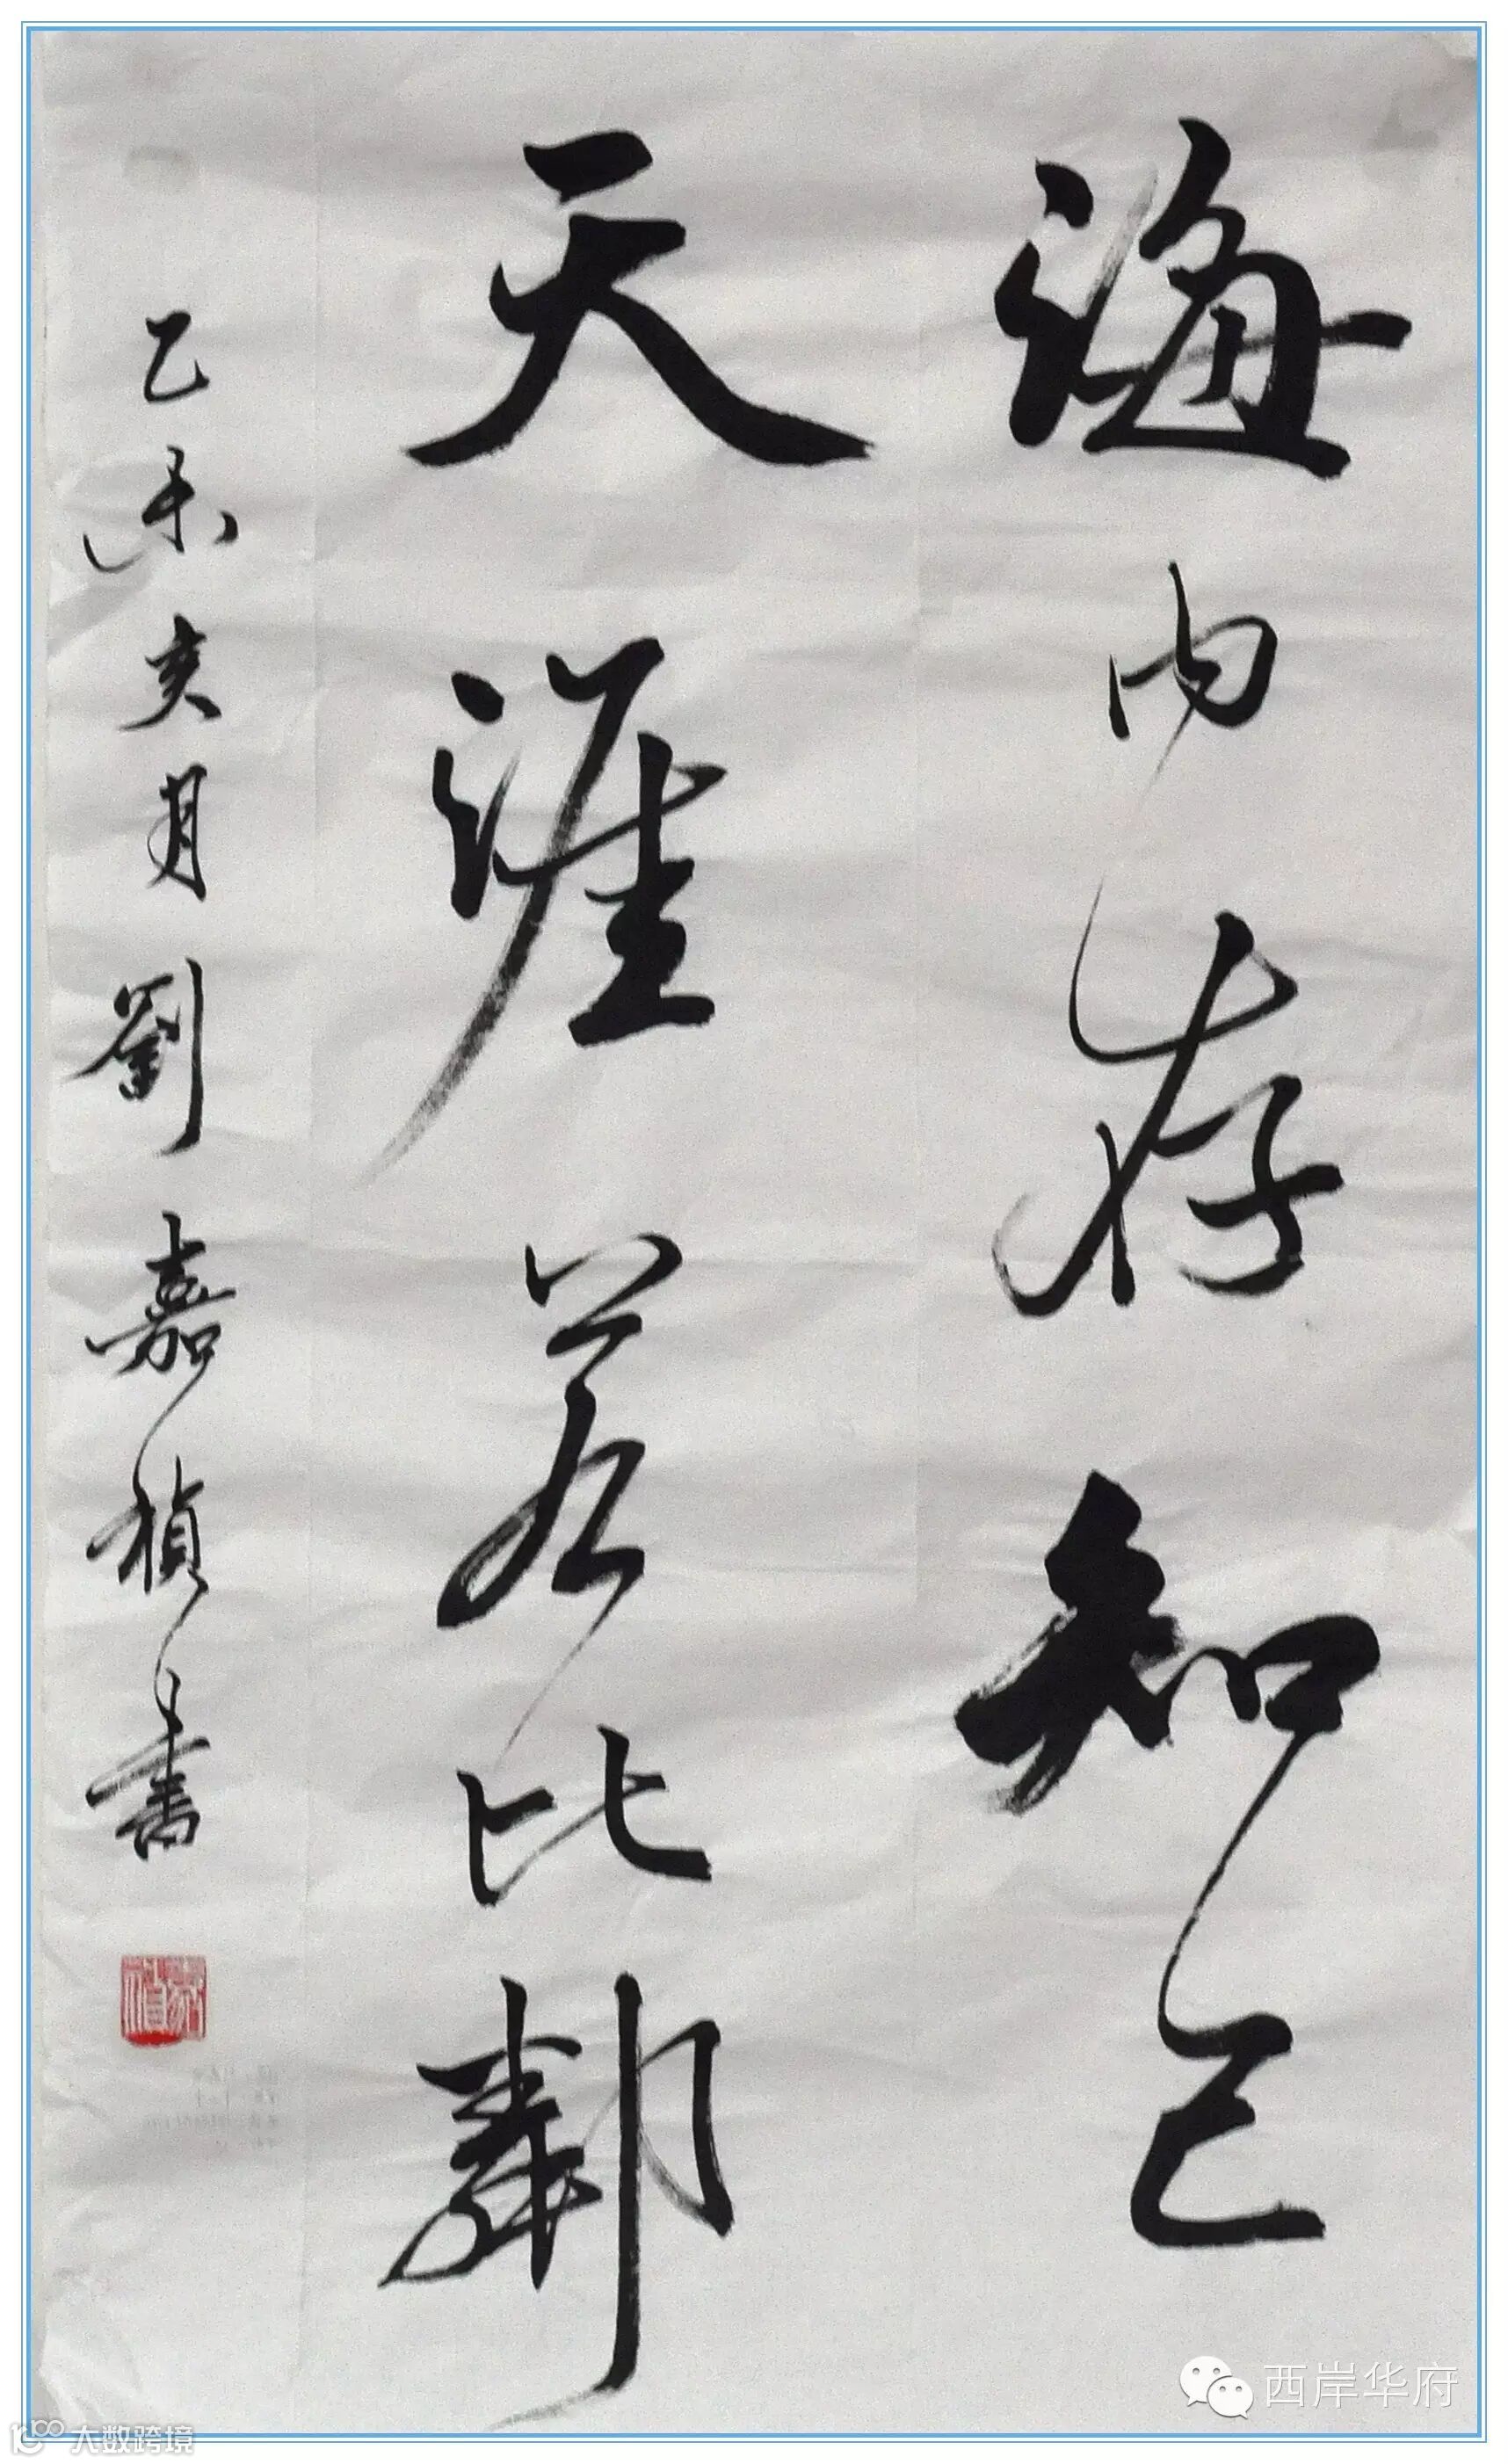 海内存知己
天涯若比鄰
乙未亥月劉嘉楨書
西岸华府
大数跨境